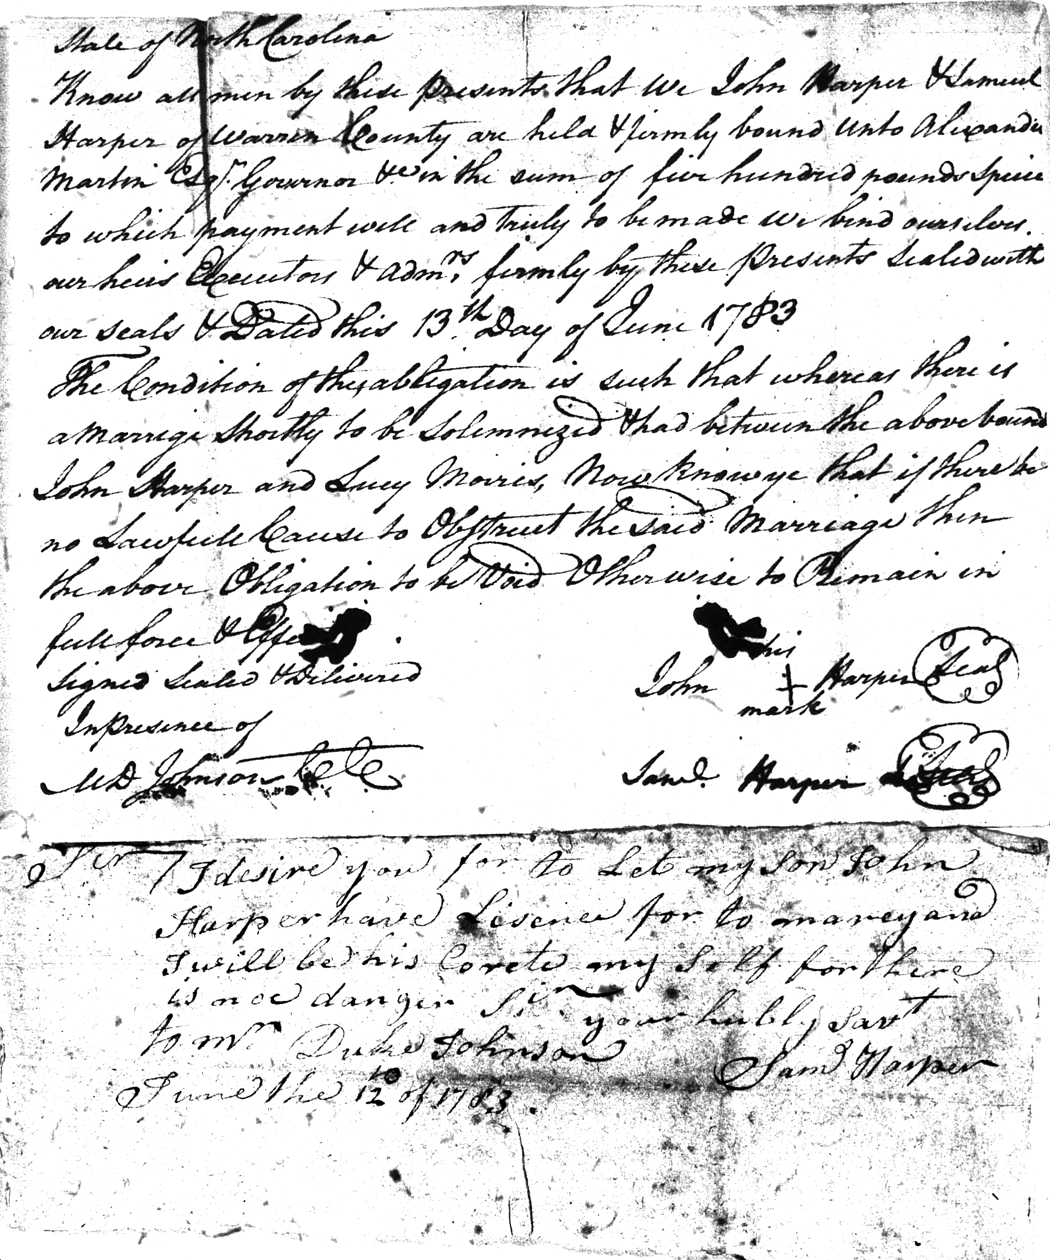 State of North Carolina
Know all men by these presents that we John Harper & Samuel
Harper of Warren County are held & firmly bound unto Alexander
Martin Esqr. Governor &c in the sum of five hundred pounds Specie
to which payment well and truly to be made we bind ourselves.
our heirs Executors & admrs, firmly by these presents sealed with
our seals & Dated this 13th Day of June 1783
The Condition of this abligation is such that whereas there is
a Marrige Shortly to be Solemnized & had between the above bound
John Harper and Lucy Morris, Now know ye that if there be
no Lawfull Cause to Obstruct the said Marriage then
the above Obligation to be Void Otherwise to Remain in
full force & Effe
Signed Sealed & Delivered
In presence of
his
John + Harper Seal
mark
MD Johnson CCC
Saml. Harper Seal
Ser I desire you for to Let my Son John
Harper have Lisence for to marey and
I will be his Corete my Self for there
is noe danger Sir
your hubl Savt
to mr Duke Johnson
Samd Harper
June the 12 of 1783.